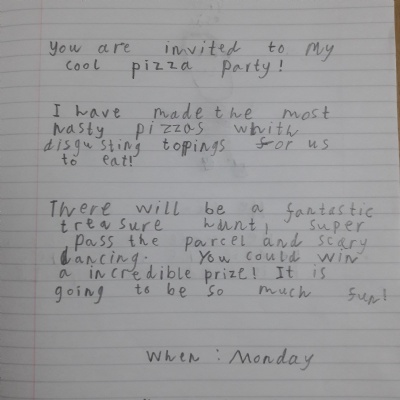 You are invited to My
cool pizza party!
I have made the most
nasty pizzas whith
disgusting toppings for us
to eat!
There will be a fantastic
treasure hunt, super
pass the parcel and scary
dancing. You could win
a incredible prize! It is
going to be so much fun!
When : Monday